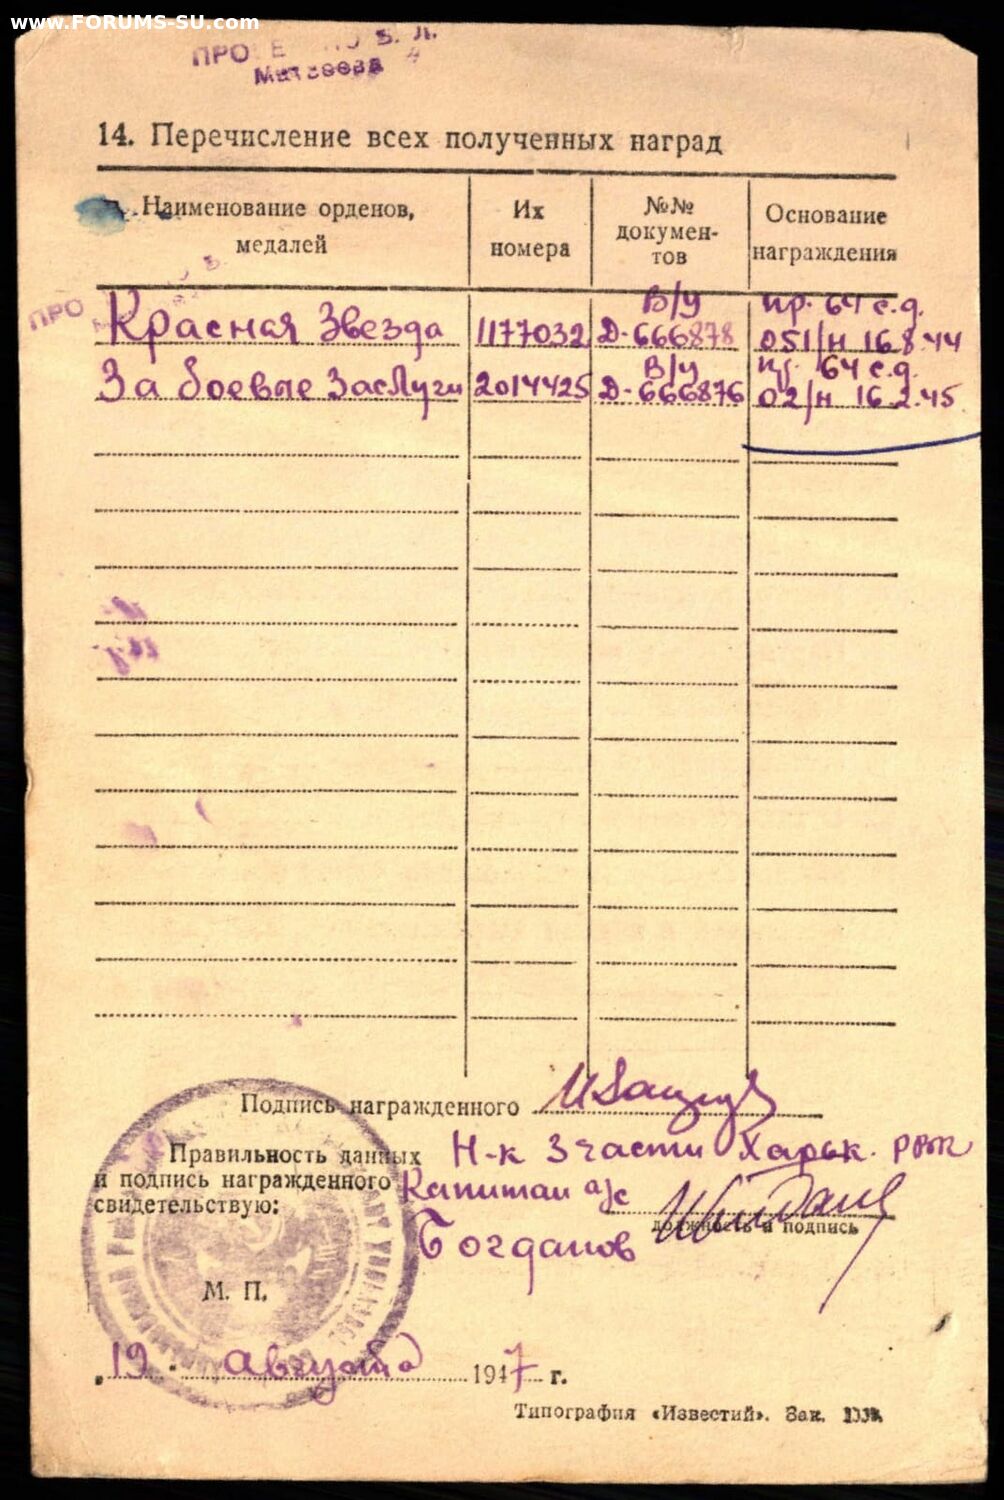 www.FORUMS-SU.com
Матвеева
14. Перечисление всех полученных наград
Наименование орденов, медалей
Их номера
№№ докумен-тов
Основание награждения
Красная Звезда 1177032 В/у Д-666878 пр. 64 с.д. 051/н 16.8.44
За боевые заслуги 2014425 В/у Д-666876 пр. 64 с.д. 02/н 16.2.45
Подпись награжденного
Правильность данных Н-к 3 части Харьк. РВК
и подпись награжденного Капитан а/с
свидетельствую:
должность и подпись
Богданов
М. П.
„19 " августа 1947 г.
Типография «Известий». Зак.